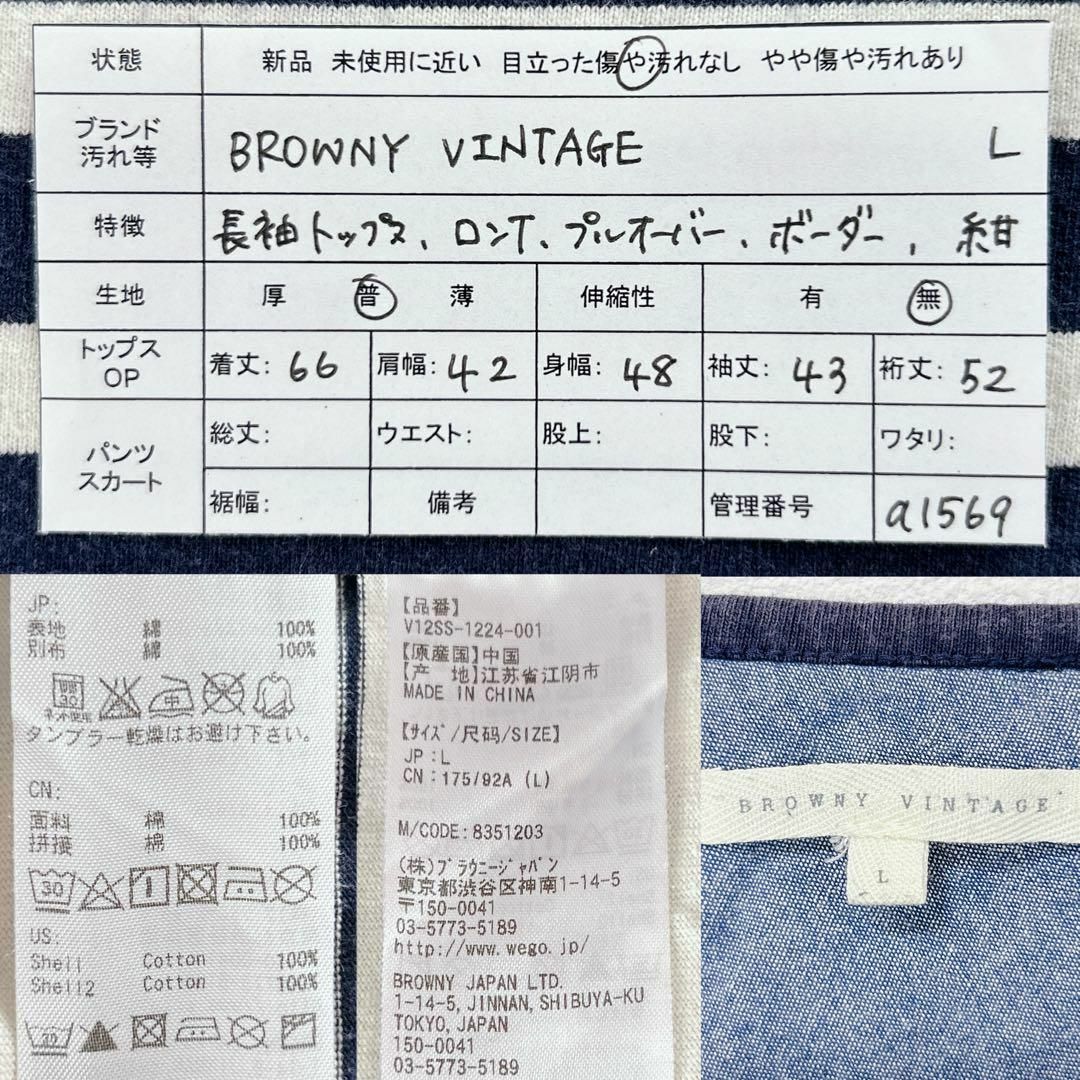 状態 新品 未使用に近い 目立った傷や汚れなし やや傷や汚れあり
ブランド
汚れ等 BROWNY VINTAGE L
特徴 長袖トップス、ロンT、プルオーバー、ボーダー、紺
生地 厚 普 薄 伸縮性 有 無
トップス
OP 着丈: 66 肩幅: 42 身幅: 48 袖丈: 43 裄丈: 52
パンツ
スカート 総丈: ウエスト: 股上: 股下: ワタリ:
裾幅: 備考 管理番号 a1569
JP:
表地 綿 100%
別布 綿 100%
30 中
ネット使用
タンブラー乾燥はお避け下さい。
CN:
面料 棉 100%
拼接 棉 100%
30
US:
Shell Cotton 100%
Shell2 Cotton 100%
30
【品番】
V12SS-1224-001
【原産国】中国
【产 地】江苏省江阴市
MADE IN CHINA
【ｻｲｽﾞ/尺码/SIZE】
JP:L
CN:175/92A (L)
M/CODE:8351203
(株)ﾌﾞﾗｳﾆｰｼﾞｬﾊﾟﾝ
東京都渋谷区神南1-14-5
〒150-0041
03-5773-5189
http://www.wego.jp/
BROWNY JAPAN LTD.
1-14-5, JINNAN, SHIBUYA-KU
TOKYO, JAPAN
150-0041
03-5773-5189
BROWNY VINTAGE
L